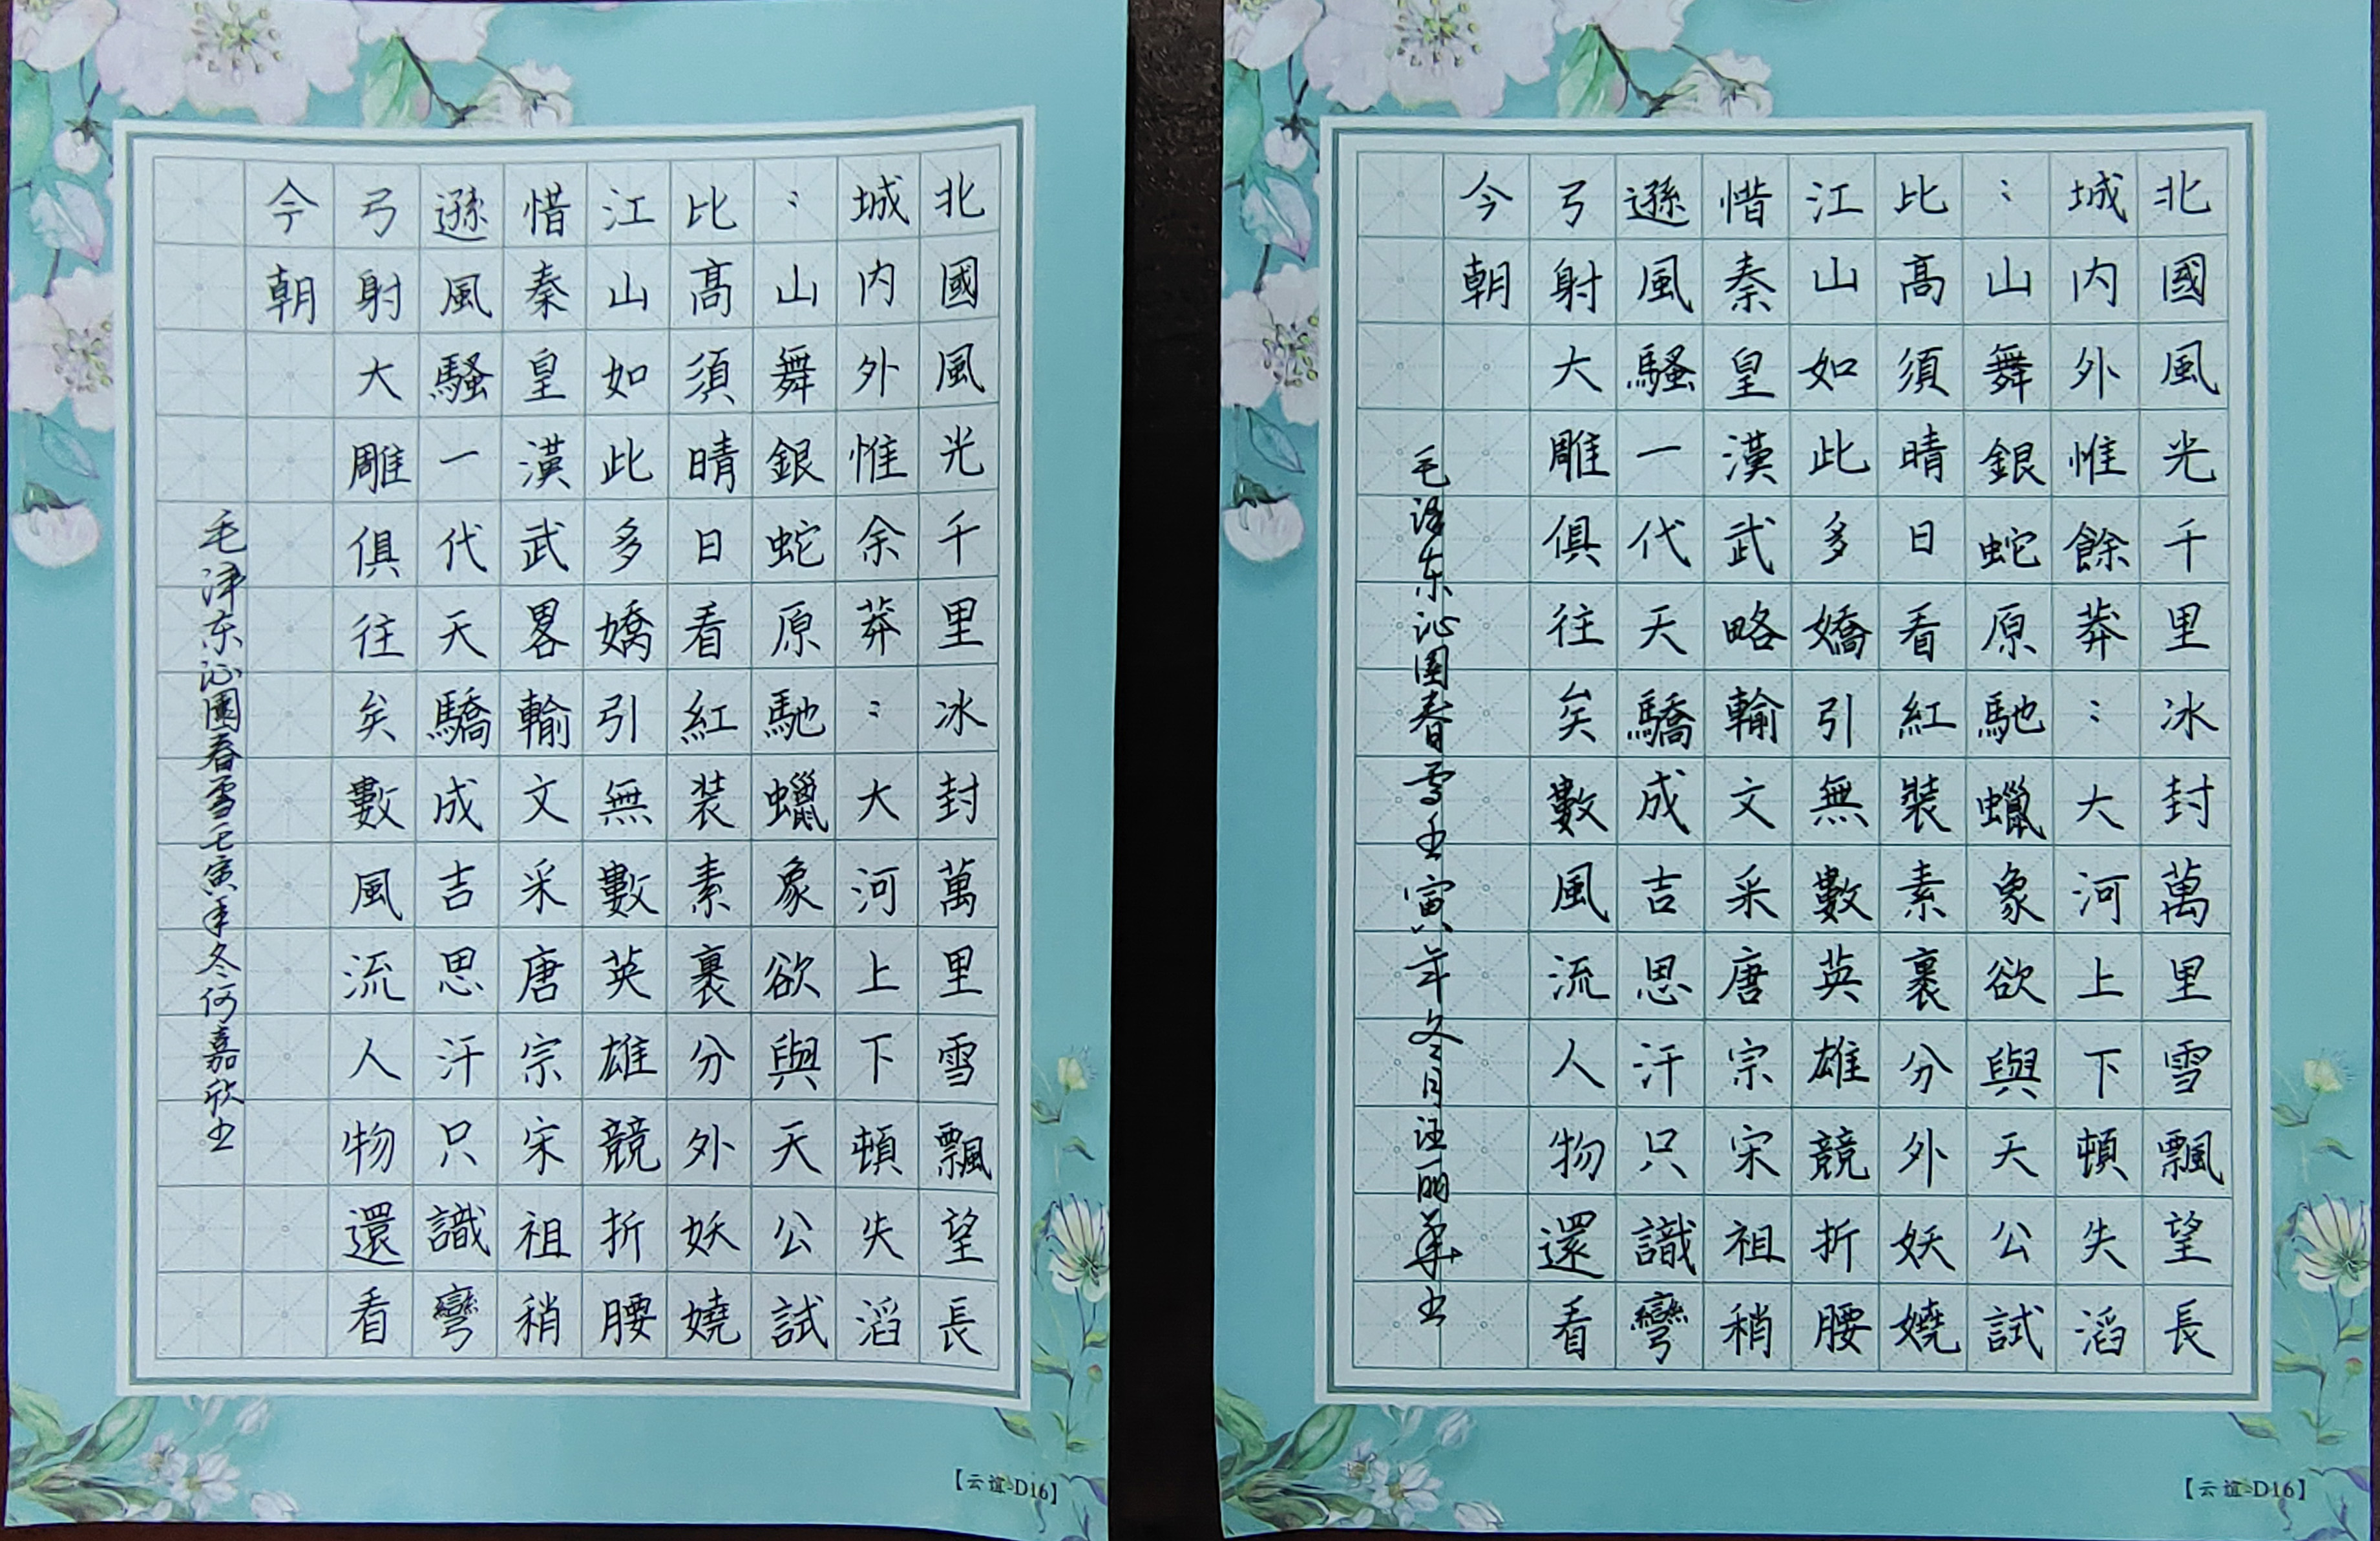 北國風光千里冰封萬里雪飄望長
城内外惟余莽：大河上下頓失滔
：山舞銀蛇原馳蠟象欲與天公試
比高須晴日看紅装素裹分外妖嬈
江山如此多嬌引無數英雄競折腰
惜秦皇漢武畧輸文采唐宗宋祖稍
遜風騷一代天驕成吉思汗只識彎
弓射大雕俱往矣數風流人物還看
今朝
毛泽东沁園春雪壬寅年冬何嘉欣书
【云谊-D16】
北國風光千里冰封萬里雪飄望長
城内外惟餘莽：大河上下頓失滔
：山舞銀蛇原馳蠟象欲與天公試
比高須晴日看紅裝素裹分外妖嬈
江山如此多嬌引無數英雄競折腰
惜秦皇漢武略輸文采唐宗宋祖稍
遜風騷一代天驕成吉思汗只識彎
弓射大雕俱往矣數風流人物還看
今朝
毛泽东沁園春雪壬寅年冬月汪丽華书
【云谊-D16】